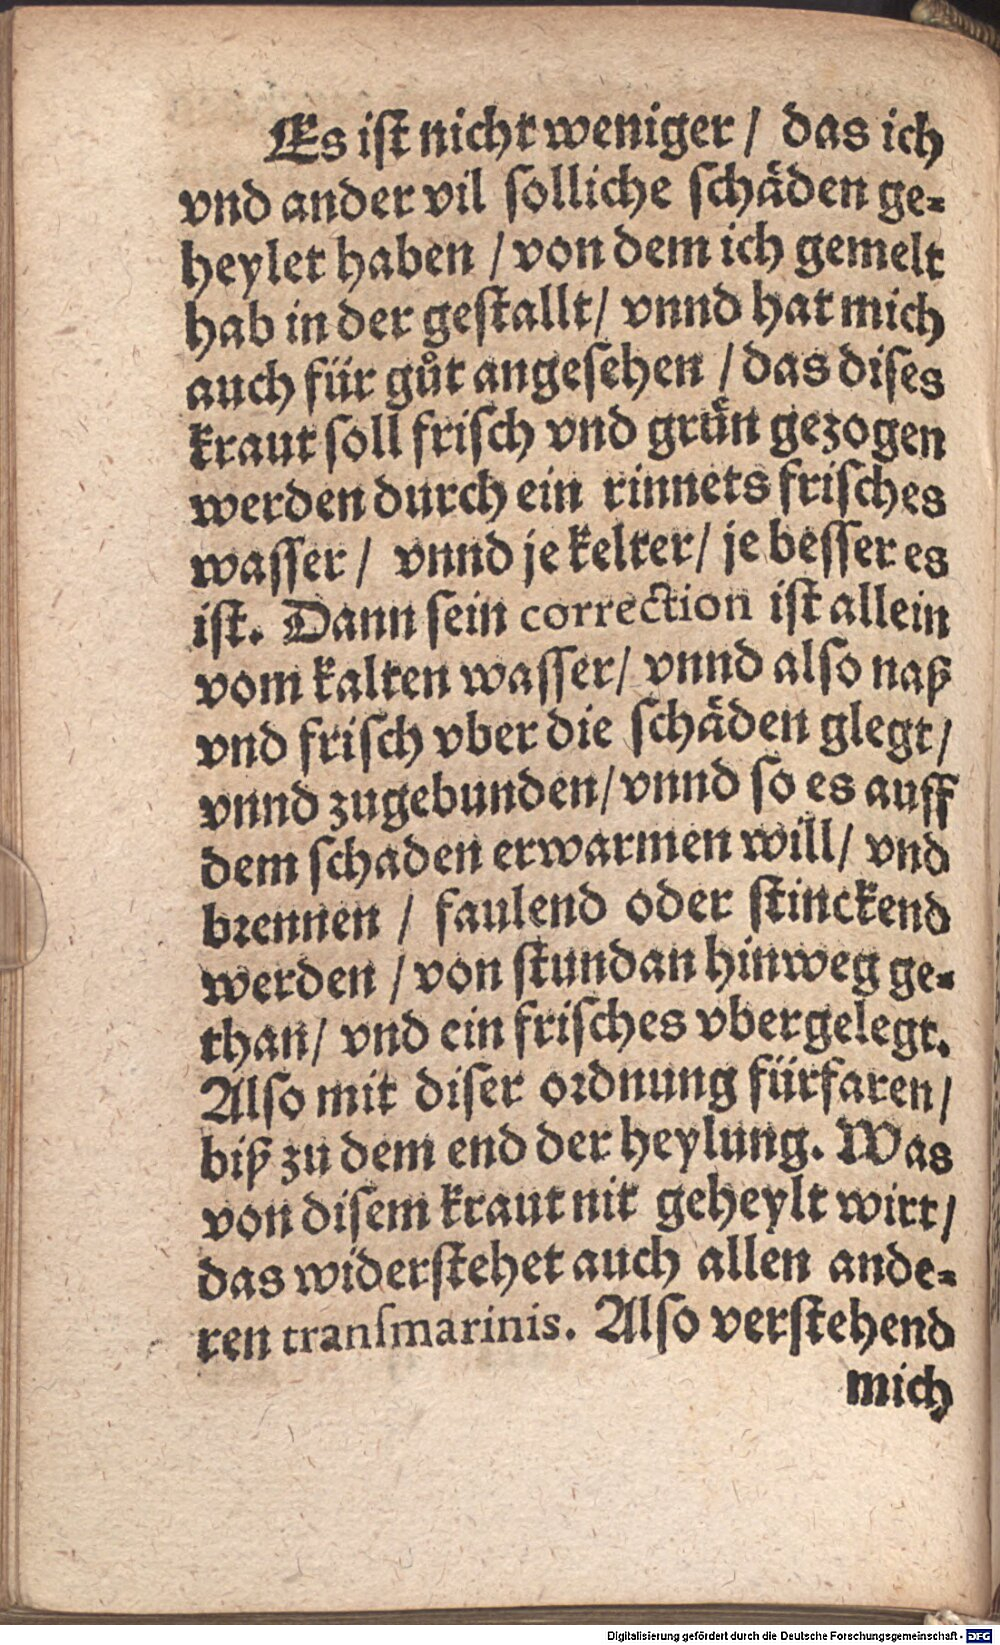 Es ist nicht weniger / das ich
vnd ander vil solliche schäden ge-
heylet haben / von dem ich gemelt
hab in der gestallt / vnnd hat mich
auch für gůt angesehen / das dises
kraut soll frisch vnd grün gezogen
werden durch ein rinnets frisches
wasser / vnnd je kelter / je besser es
ist. Dann sein correction ist allein
vom kalten wasser / vnnd also naß
vnd frisch vber die schäden glegt /
vnnd zugebunden / vnnd so es auff
dem schaden erwarmen will / vnd
brennen / faulend oder stinckend
werden / von stundan hinweg ge-
than / vnd ein frisches vbergelegt.
Also mit diser ordnung fürfaren /
biß zu dem end der heylung. Was
von disem kraut nit geheylt wirt /
das widerstehet auch allen ande-
ren transmarinis. Also verstehend
mich
Digitalisierung gefördert durch die Deutsche Forschungsgemeinschaft - DFG